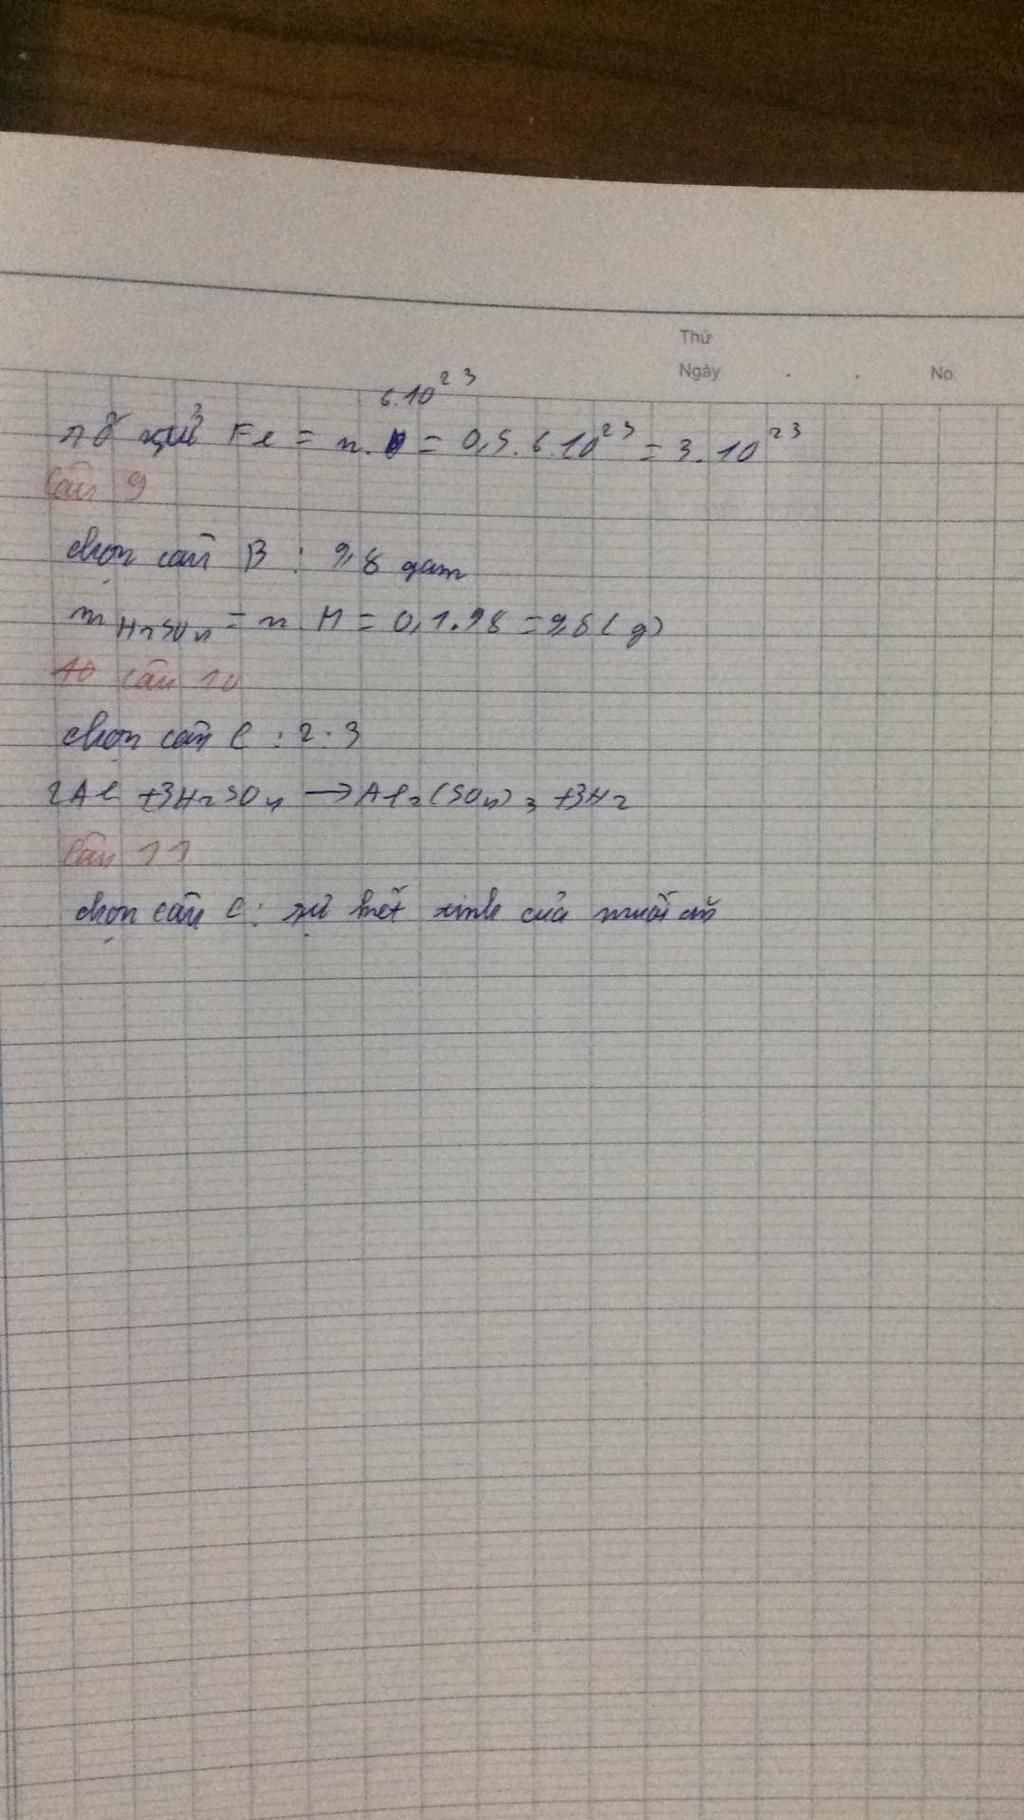 Thứ
Ngày . . No.
6.10²³
Số ngtử Fe = n. = 0,5.6.10²³ = 3.10²³
Câu 9
chọn câu B : 9,8 gam
m H₂SO₄ = n . M = 0,1.98 = 9,8 (g)
Câu 10
chọn câu C : 2:3
2Al + 3H₂SO₄ → Al₂(SO₄)₃ + 3H₂
Câu 11
chọn câu C : sự kết tinh của muối ăn